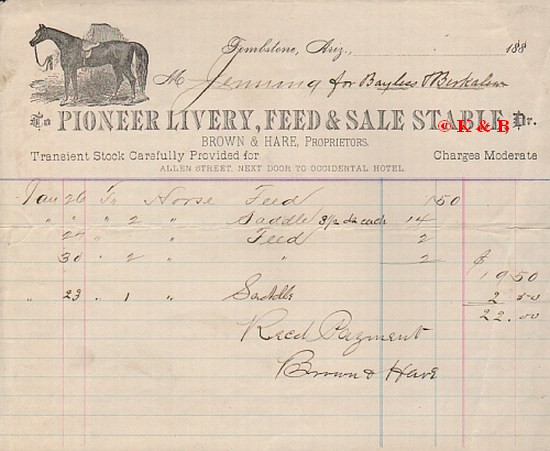 Tombstone, Ariz., 188
M Jenning for Bayless & Berkalew
To PIONEER LIVERY, FEED & SALE STABLE, Dr.
@ K & B
BROWN & HARE, PROPRIETORS.
Transient Stock Carefully Provided for Charges Moderate
ALLEN STREET, NEXT DOOR TO OCCIDENTAL HOTEL.
Jan 26 To Horse Feed 1 50
" " " 2 " Saddle 3 1/2 da each 14
" " Feed 2
30 " 2 " " 2 $
19 50
" 23 " 1 " Saddle 2 50
22.00
Recd Payment
Brown & Hare